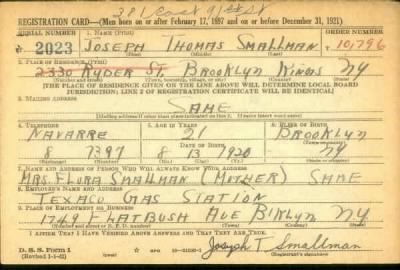 381 East 91st St
REGISTRATION CARD—(Men born on or after February 17, 1897 and on or before December 31, 1921)
SERIAL NUMBER 1. NAME (Print) ORDER NUMBER
2023 JOSEPH THOMAS SMALLMAN 10,796
(First) (Middle) (Last)
2. PLACE OF RESIDENCE (Print)
2330 RYDER ST. BROOKLYN KINGS NY
(Number and street) (Town, township, village, or city) (County) (State)
[THE PLACE OF RESIDENCE GIVEN ON THE LINE ABOVE WILL DETERMINE LOCAL BOARD
JURISDICTION; LINE 2 OF REGISTRATION CERTIFICATE WILL BE IDENTICAL]
3. MAILING ADDRESS
SAME
[Mailing address if other than place indicated on line 2. If same insert word same]
4. TELEPHONE 5. AGE IN YEARS 6. PLACE OF BIRTH
NAVARRE 21 BROOKLYN
DATE OF BIRTH (Town or county)
8 7397 8 13 1920 NY
(Exchange) (Number) (Mo.) (Day) (Yr.) (State or country)
7. NAME AND ADDRESS OF PERSON WHO WILL ALWAYS KNOW YOUR ADDRESS
MRS. FLORA SMALLMAN (MOTHER) SAME
8. EMPLOYER'S NAME AND ADDRESS
TEXACO GAS STATION
9. PLACE OF EMPLOYMENT OR BUSINESS
1749 FLATBUSH AVE B'KLYN NY.
(Number and street or R. F. D. number) (Town) (County) (State)
I AFFIRM THAT I HAVE VERIFIED ABOVE ANSWERS AND THAT THEY ARE TRUE.
D. S. S. Form 1 Joseph T. Smallman
(Revised 1-1-42) (over)